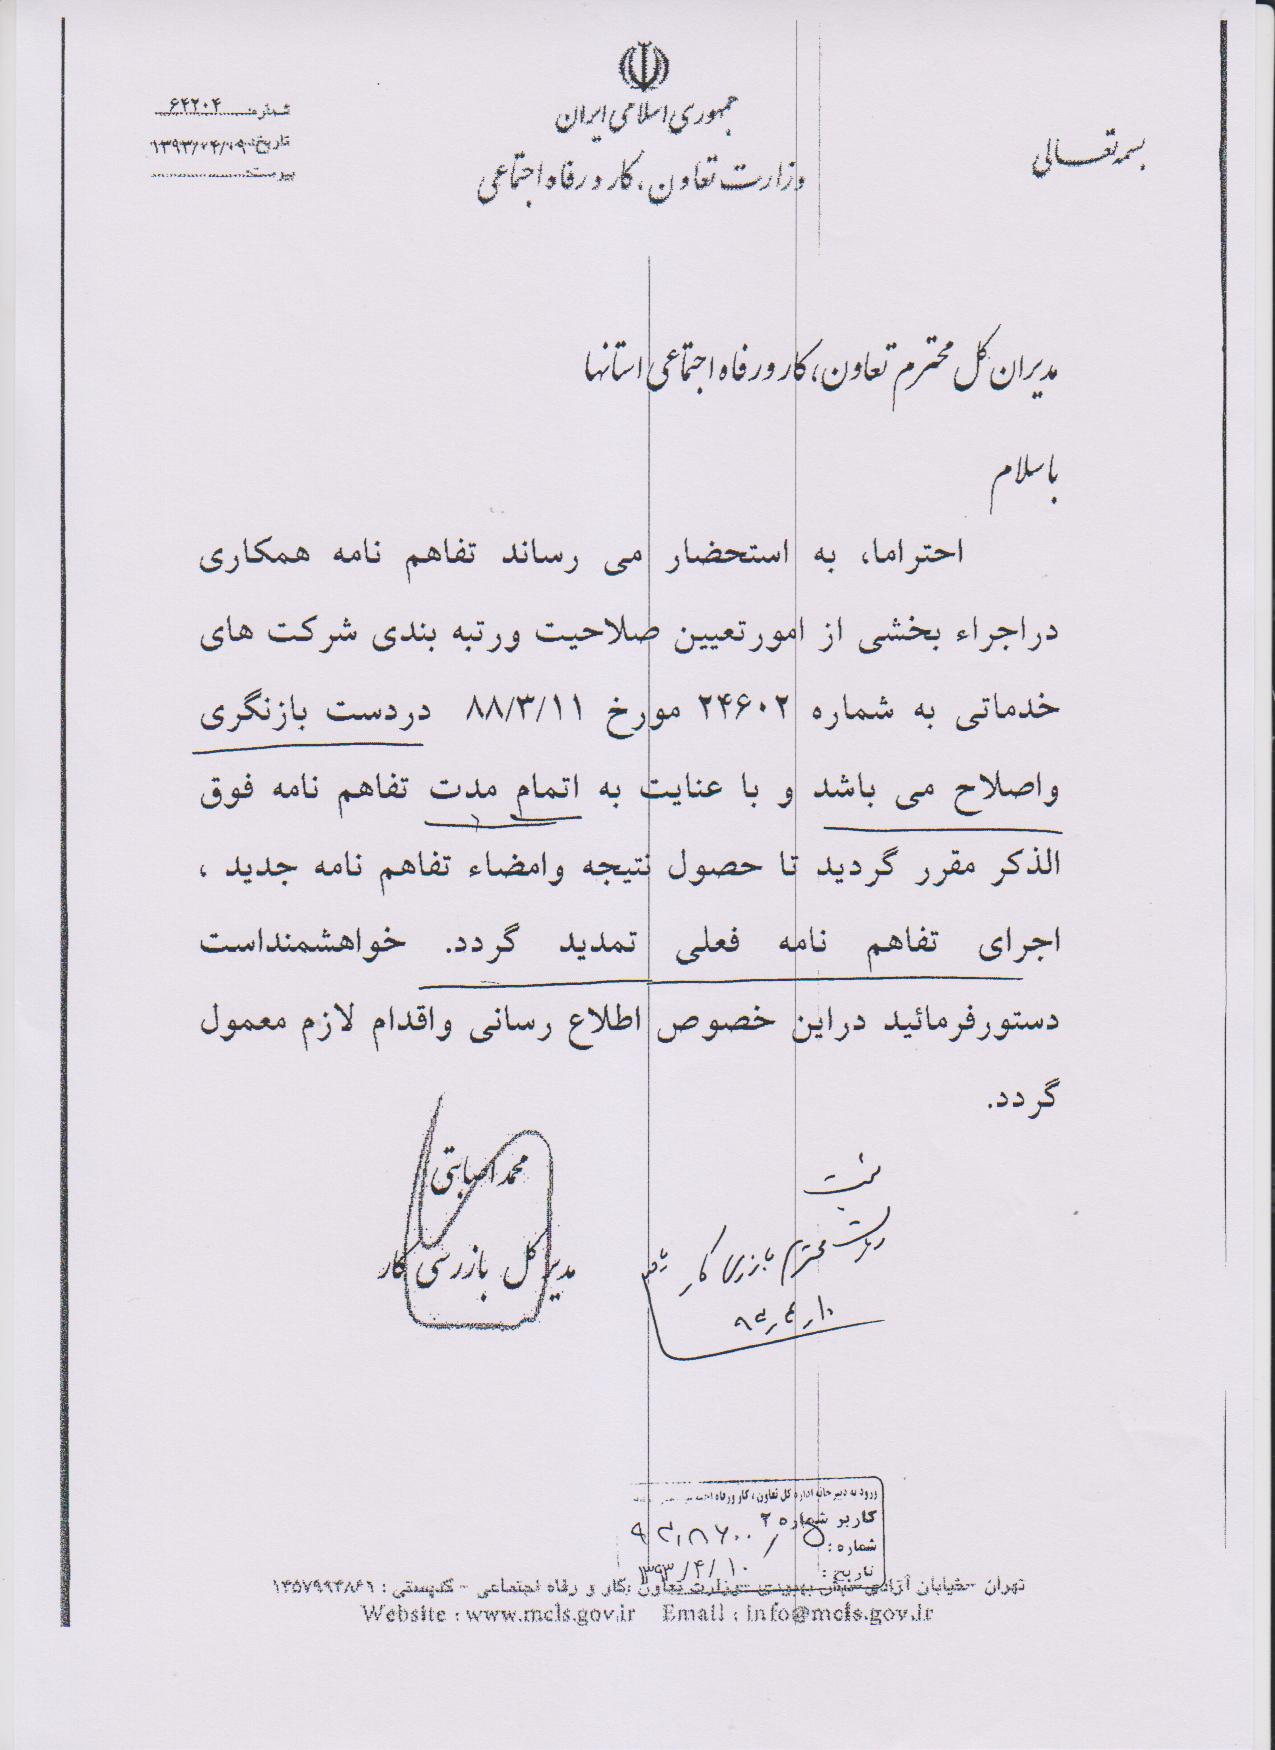 جمهوری اسلامی ایران
وزارت تعاون، کار و رفاه اجتماعی
بسمه تعالی
شماره: ۶۴۲۰۴
تاریخ: ۱۳۹۳/۰۴/۰۹
پیوست:
مدیران کل محترم تعاون، کار و رفاه اجتماعی استانها
با سلام
احتراما، به استحضار می رساند تفاهم نامه همکاری
دراجراء بخشی از امورتعیین صلاحیت ورتبه بندی شرکت های
خدماتی به شماره ۲۴۶۰۲ مورخ ۸۸/۳/۱۱ دردست بازنگری
واصلاح می باشد و با عنایت به اتمام مدت تفاهم نامه فوق
الذکر مقرر گردید تا حصول نتیجه وامضاء تفاهم نامه جدید ،
اجرای تفاهم نامه فعلی تمدید گردد. خواهشمنداست
دستورفرمائید دراین خصوص اطلاع رسانی واقدام لازم معمول
گردد.
محمد اصابتی
مدیر کل بازرسی کار
ثبت
ریاست محترم بازرسی کار
۹۳٫۴٫۱۰
ورود به دبیرخانه اداره کل تعاون، کار ورفاه
کاربر شماره ۲
شماره:
تاریخ: ۱۳۹۳/۴/۱۰
تهران -خیابان آزادی -نبش بهبودی -وزارت تعاون ،کار و رفاه اجتماعی - کدپستی : ۱۴۵۷۹۹۴۸۶۱
Website : www.mcls.gov.ir Email : info@mcls.gov.ir